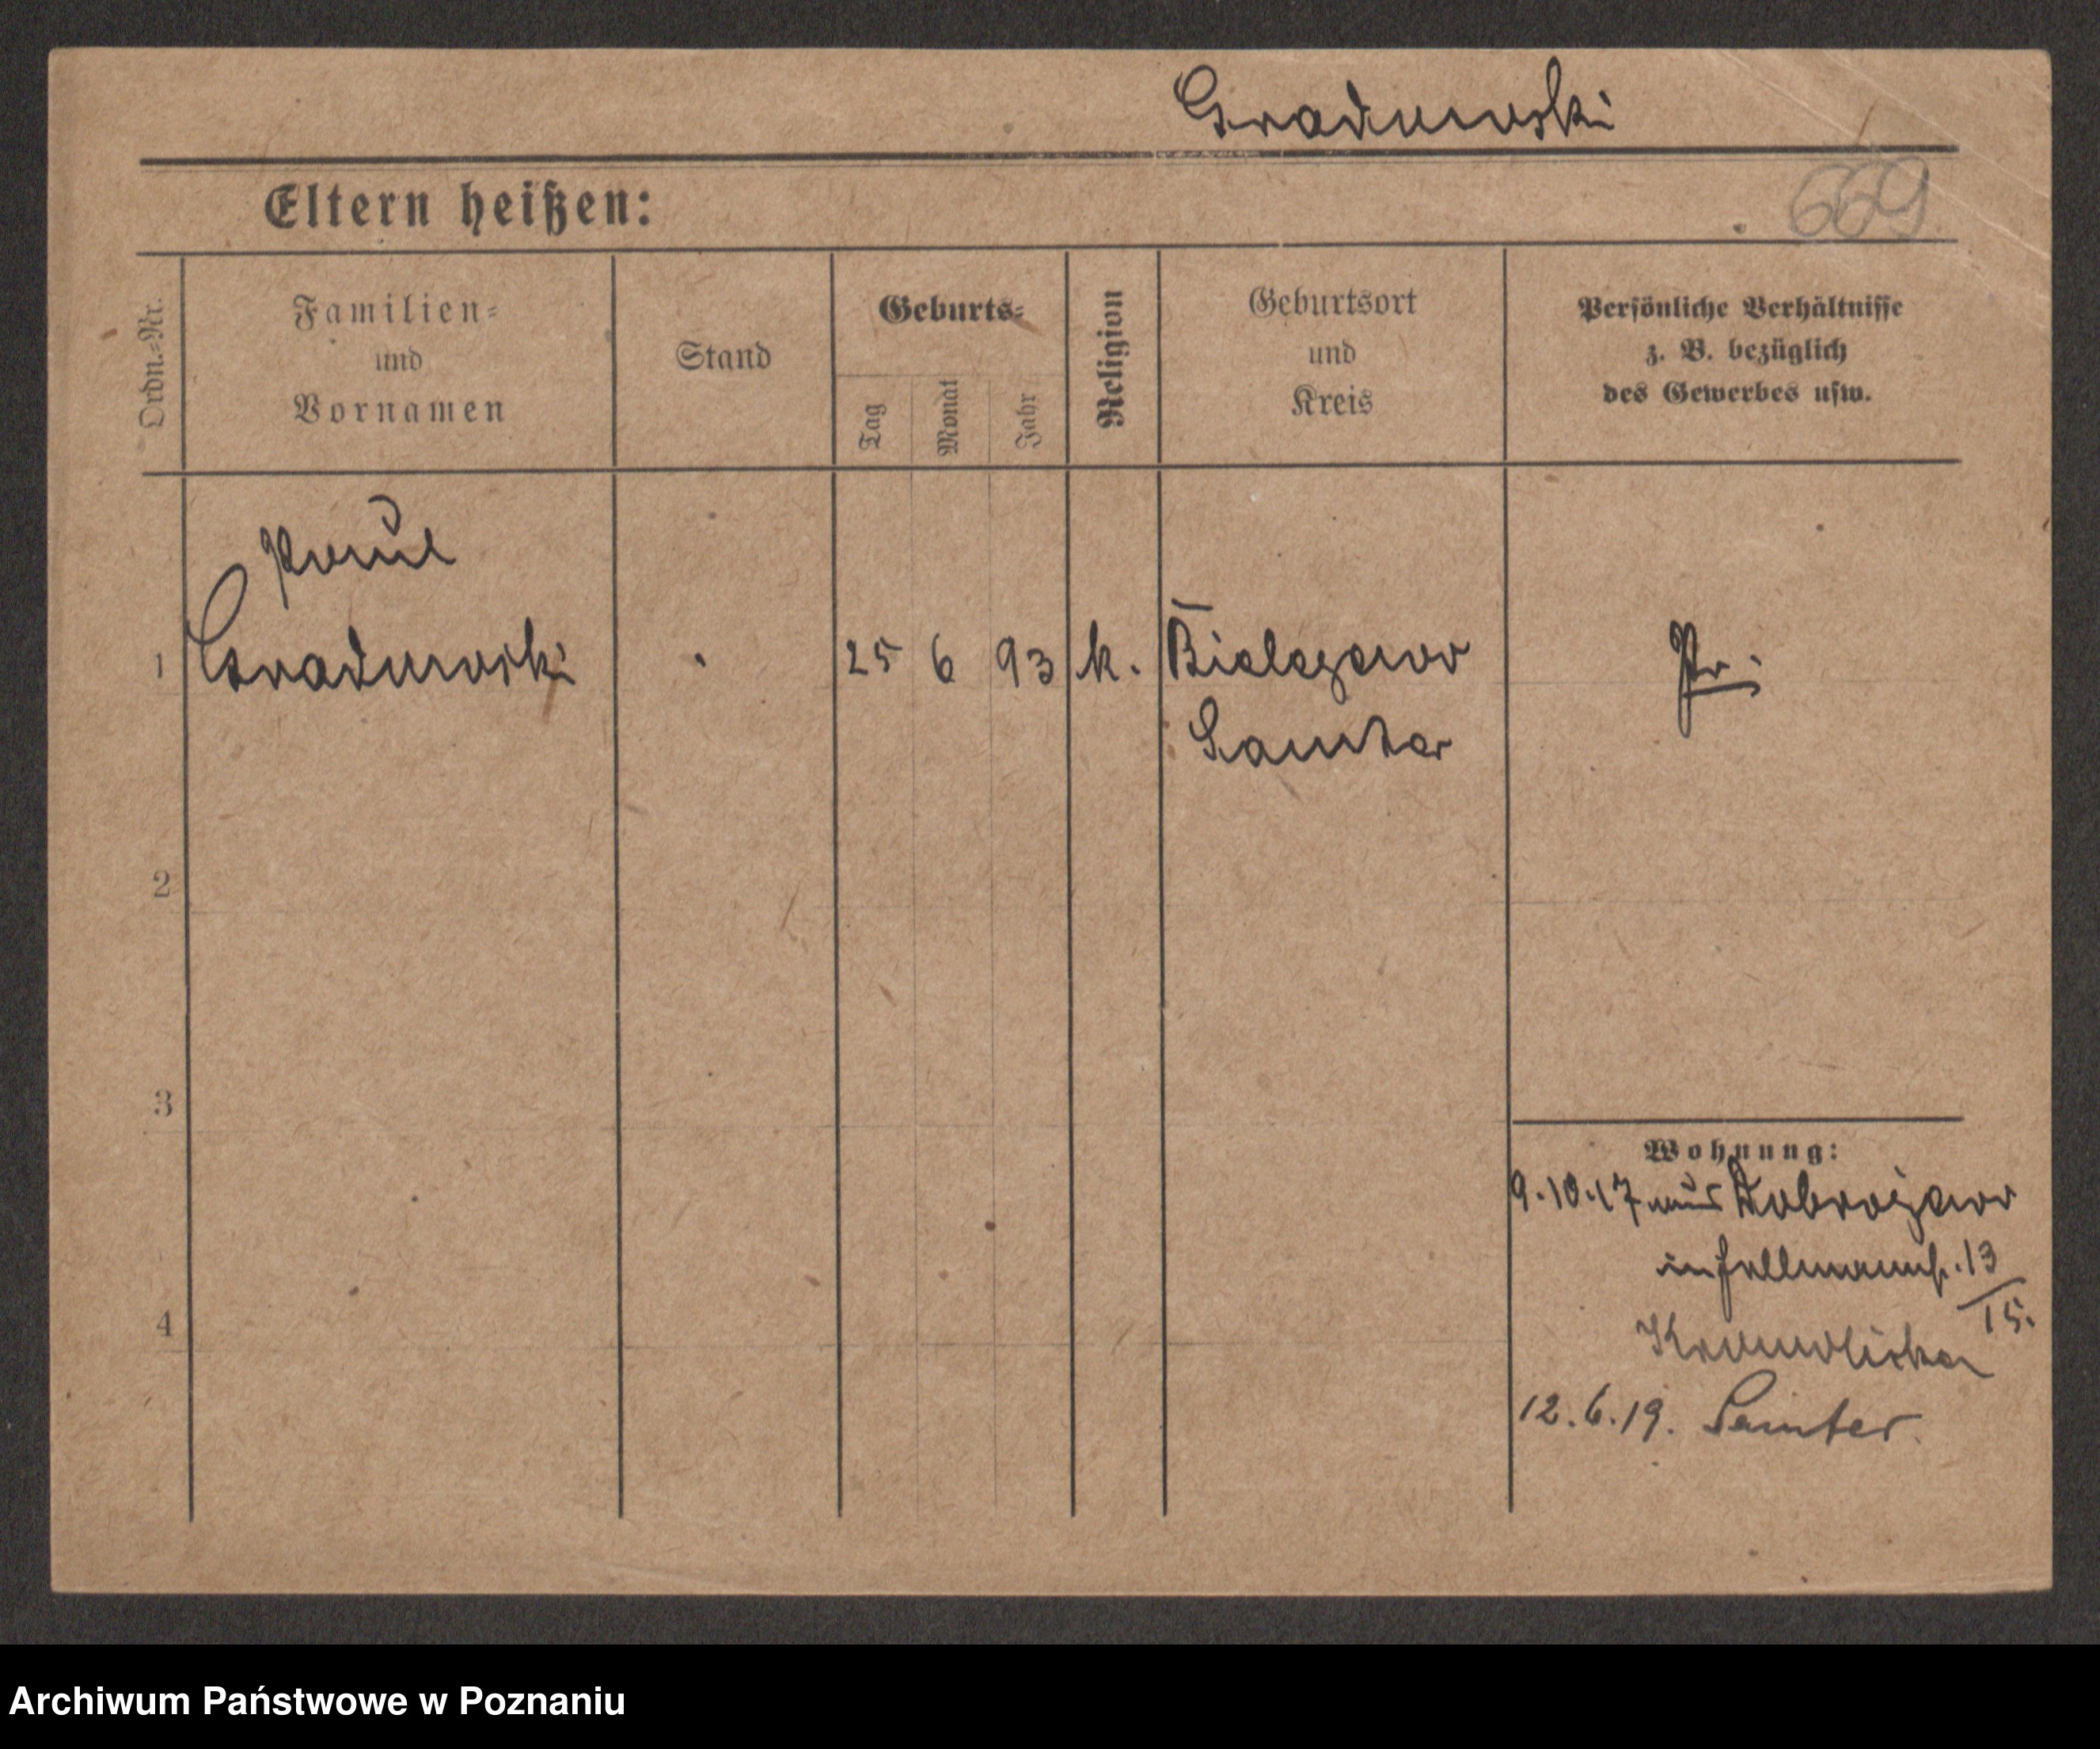 Gradurwski
669
Eltern heißen:
Ordn.-Nr.
Familien-
und
Vornamen
Stand
Geburts-
Tag
Monat
Jahr
Religion
Geburtsort
und
Kreis
Persönliche Verhältnisse
z. B. bezüglich
des Gewerbes usw.
Paul
1
25 6 93 k.
Samter
Pr.
2
3
4
Wohnung:
9.10.17 aus Dobrojewo
13
15.
12.6.19. Samter.
Archiwum Państwowe w Poznaniu